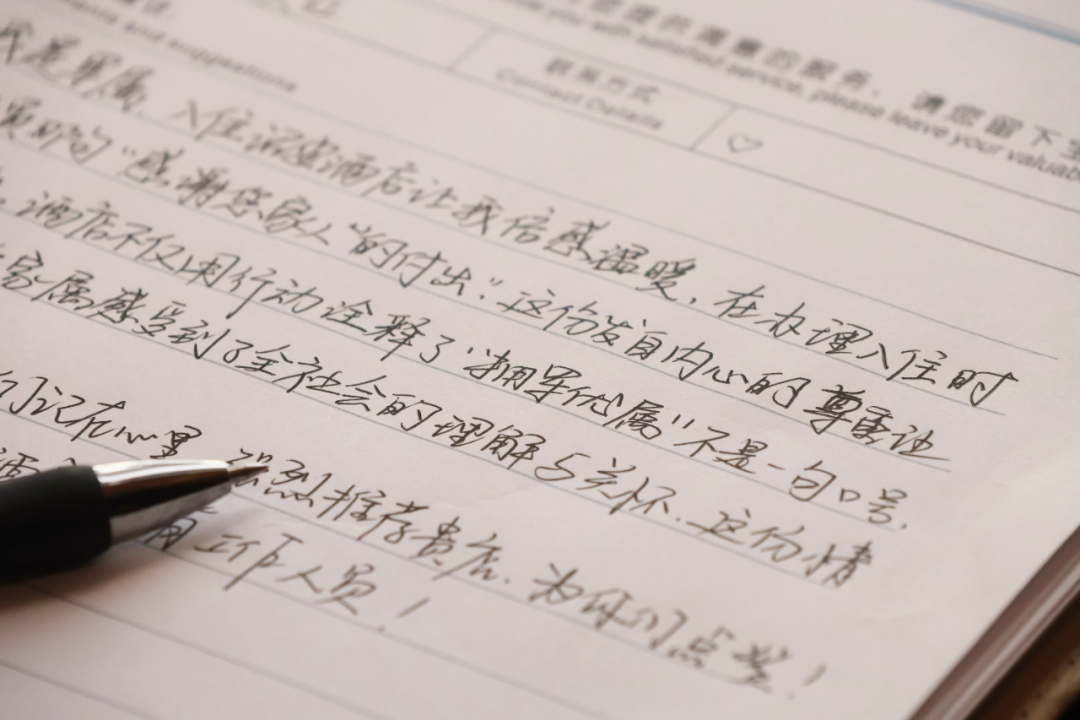 您提供满意的服务，请您留下宝
de you with satisfied service, please leave your valuab
联系方式
Contact Details
♡
ments and suggestions
我是军属，入住深虑酒店让我倍感温暖，在办理入住时
员那句“感谢您家人”的付出”，这份发自内心的尊重让
酒店不仅用行动诠释了“拥军优属”不是一句口号，
家属感受到了全社会的理解与关怀，这份情
们记在心里 强烈推荐贵店，为你们点奖！
工作人员！